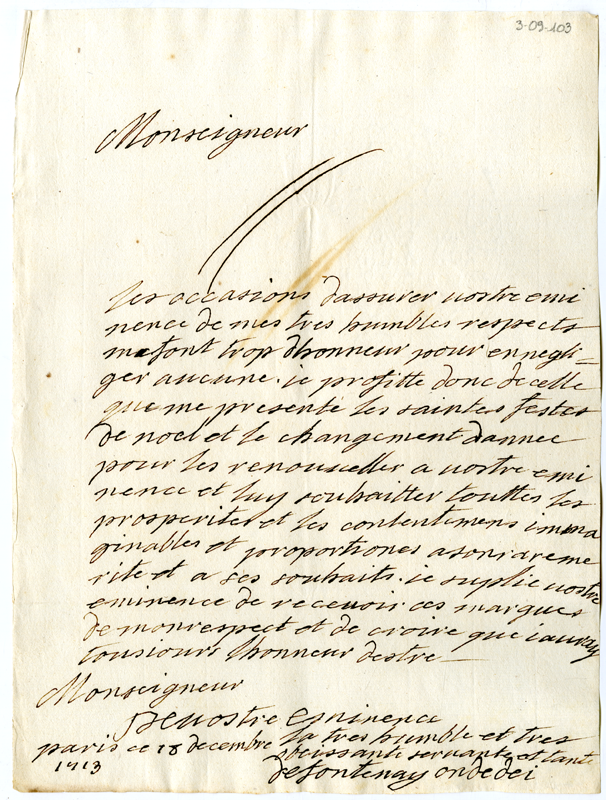 3-09-103
Monseigneur
les occasions dassurer vostre emi
nence de mes tres humbles respects
me font trop dhonneur pour en negli=
ger aucune. ie profitte donc de celle
que me presente les saintes festes
de noel et le changement dannee
pour les renouveller a vostre emi
nence et luy souhaitter touttes les
prosperites et les contentemens imma
ginables et proportiones a son rare me
rite et a ses souhaits. ie suplie vostre
eminence de recevoir ces marques
de mon respect et de croire que iauray
tousiours lhonneur destre
Monseigneur
De vostre Eminence
paris ce 18 decembre la tres humble et tres
1713 obeissante servante et tante
de fontenay ondedei